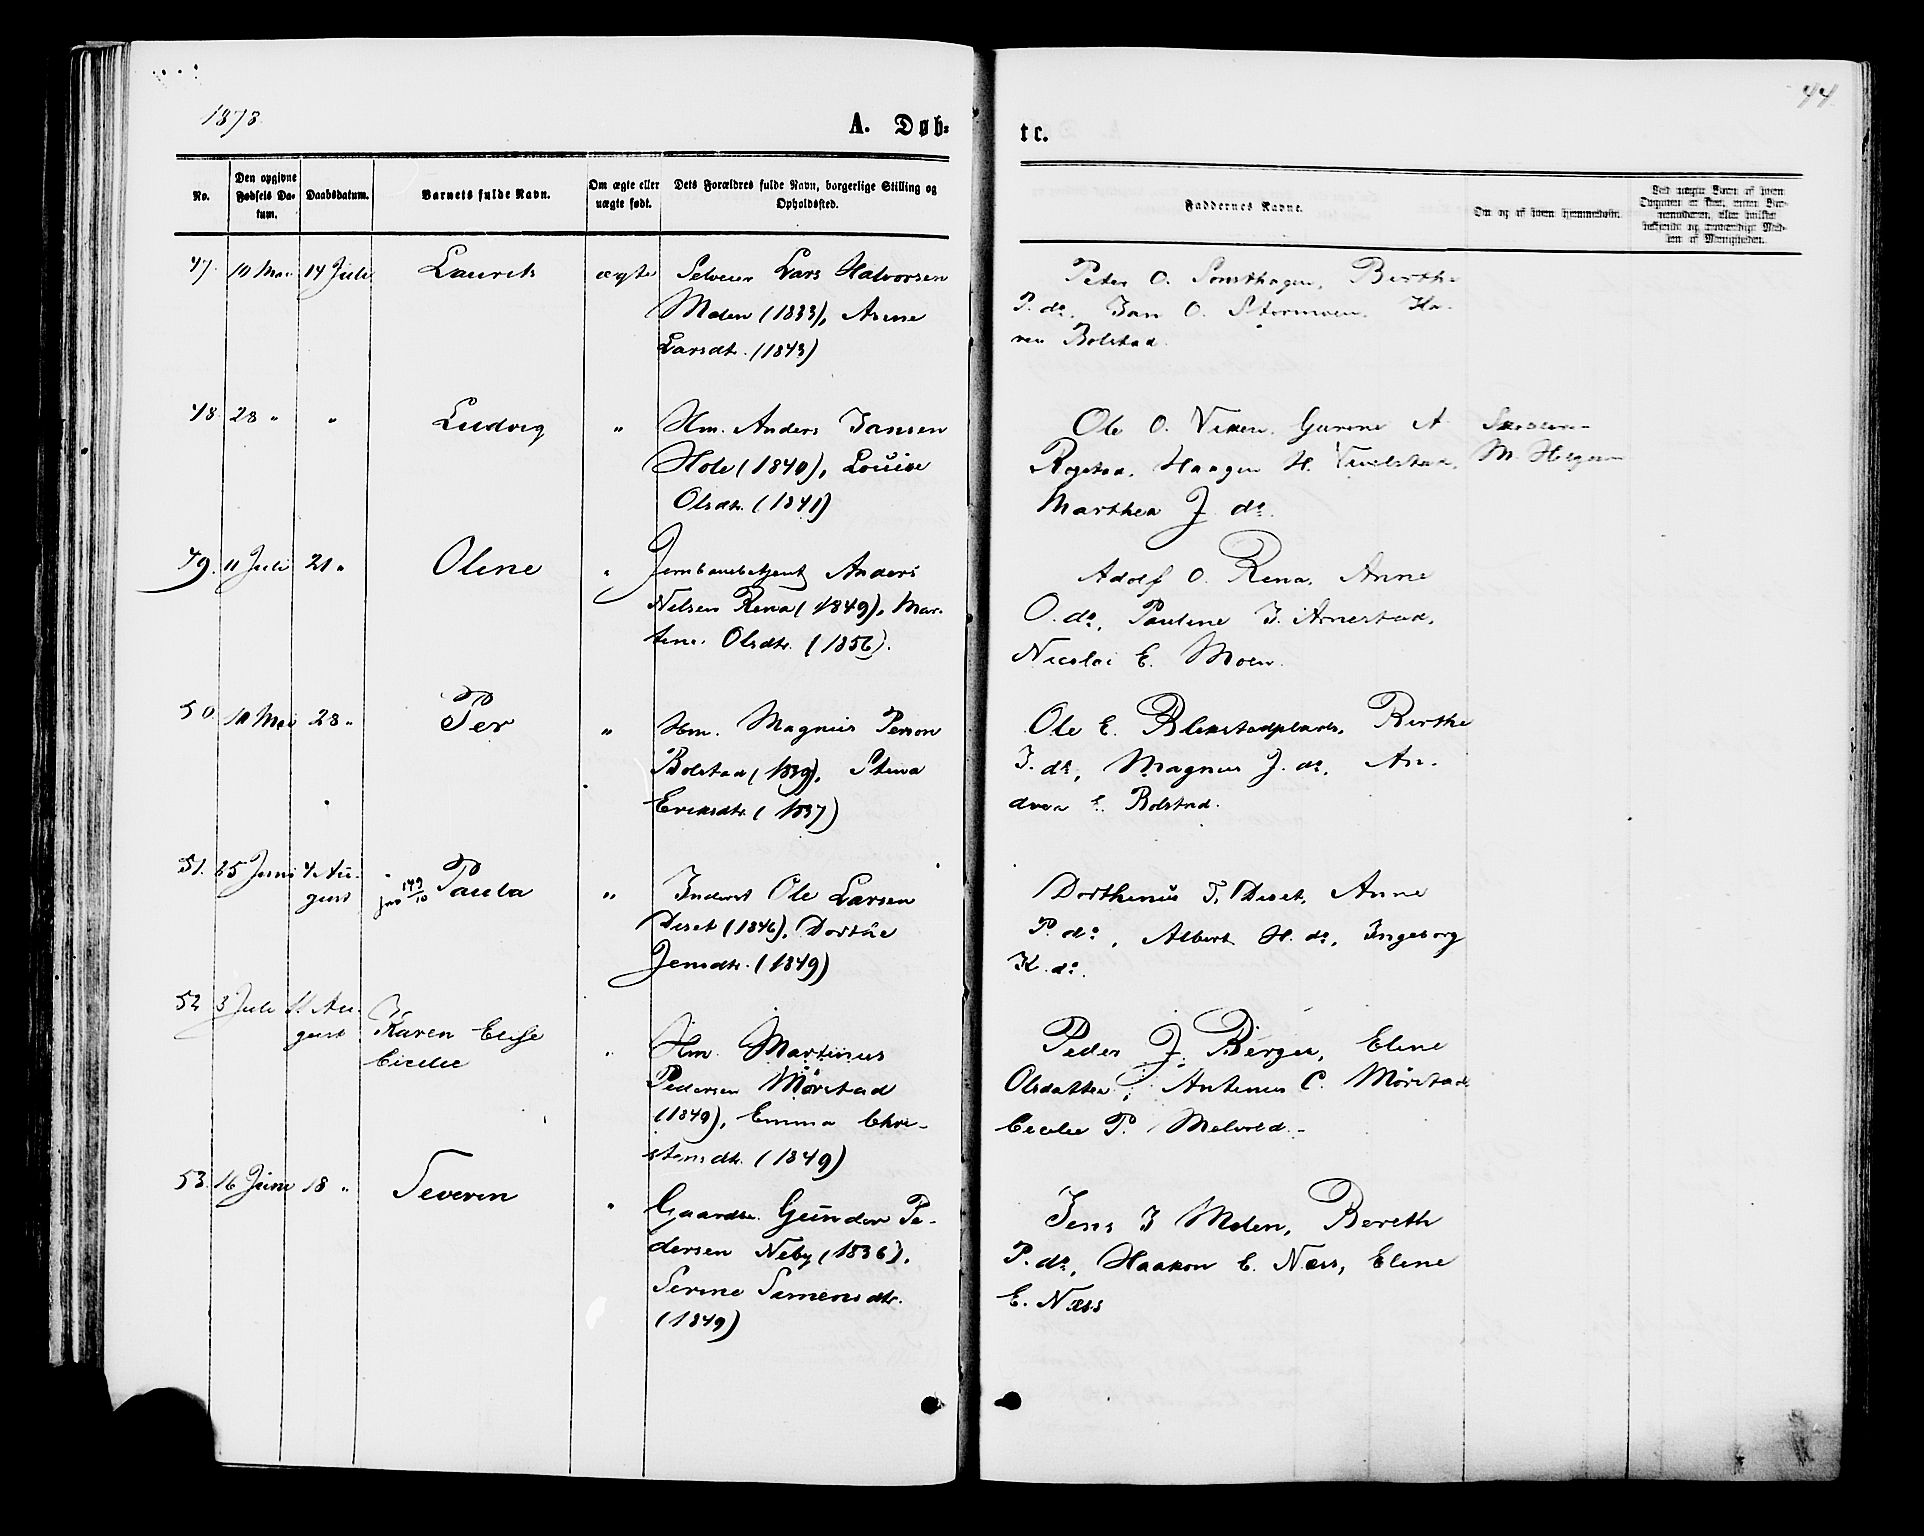 44
1878.
A. Døb=
te.
No.
Den opgivne Fødsels Da-tum.
Daabsdatum.
Barnets fulde Navn.
Om ægte eller uægte født.
Dets Forældres fulde Navn, borgerlige Stilling og Opholdssted.
Faddernes Navne.
Om og af hvem hjemmedøbt.
47. 10 Mai 14 Juli Laurits ægte Selveier Lars Halvorsen
Moen (1833), Anne
Larsdtr. (1843)
Peder O. Sønsthagen, Berthe
P. do, Jan O. Stormoen, Ka-
ren Bolstad.
48. 28 " " Ludvig " Hm. Anders Jansen
Hole (1840), Louise
Olsdtr. (1841)
Ole O. Viken, Gurine A.
Rogstad, Haagen H.
Marthea J. do.
M. Hegern
49. 11 Juli 21 " Olene " Jernbanebetjent Anders
Nilsen Rena (1849), Mar-
tine Olsdtr. (1856).
Adolf O. Rena, Anne
O. do, Pauline J. Arnestad,
Nicolai E. Moen.
50. 10 Mai 28 " Per " Hm. Magnus Person
Bolstad (1839), Stina
Eriksdtr. (1837)
Ole E. Blekstadplads, Berthe
J. do, Magnus J. do, An-
drea E. Bolstad.
51. 25 Juni 4 Au-
gust
Paula " Inderst Ole Larsen
Diset (1846), Dorthe
Jensdtr. (1849)
Dorthinus T. Diset, Anne
P. do, Albert H. do, Ingeborg
K. do.
52. 3 Juli 11 Au-
gust
Karen Elise
Cecilie
" Hm. Martinus
Pedersen Mörstad
(1849), Emma Chri-
stensdtr. (1849)
Peder J. Berger, Eline
Olsdatter, Antinus C. Mörstad
Cecilie P. Melvold.
53. 16 Juni 18 " Severin " Gaardbr. Gunder Pe-
dersen Neby (1836),
Serine Simensdtr.
(1849)
Jens J. Moen, Bereth
P. do, Haakon E. Næss, Eline
E. Næss